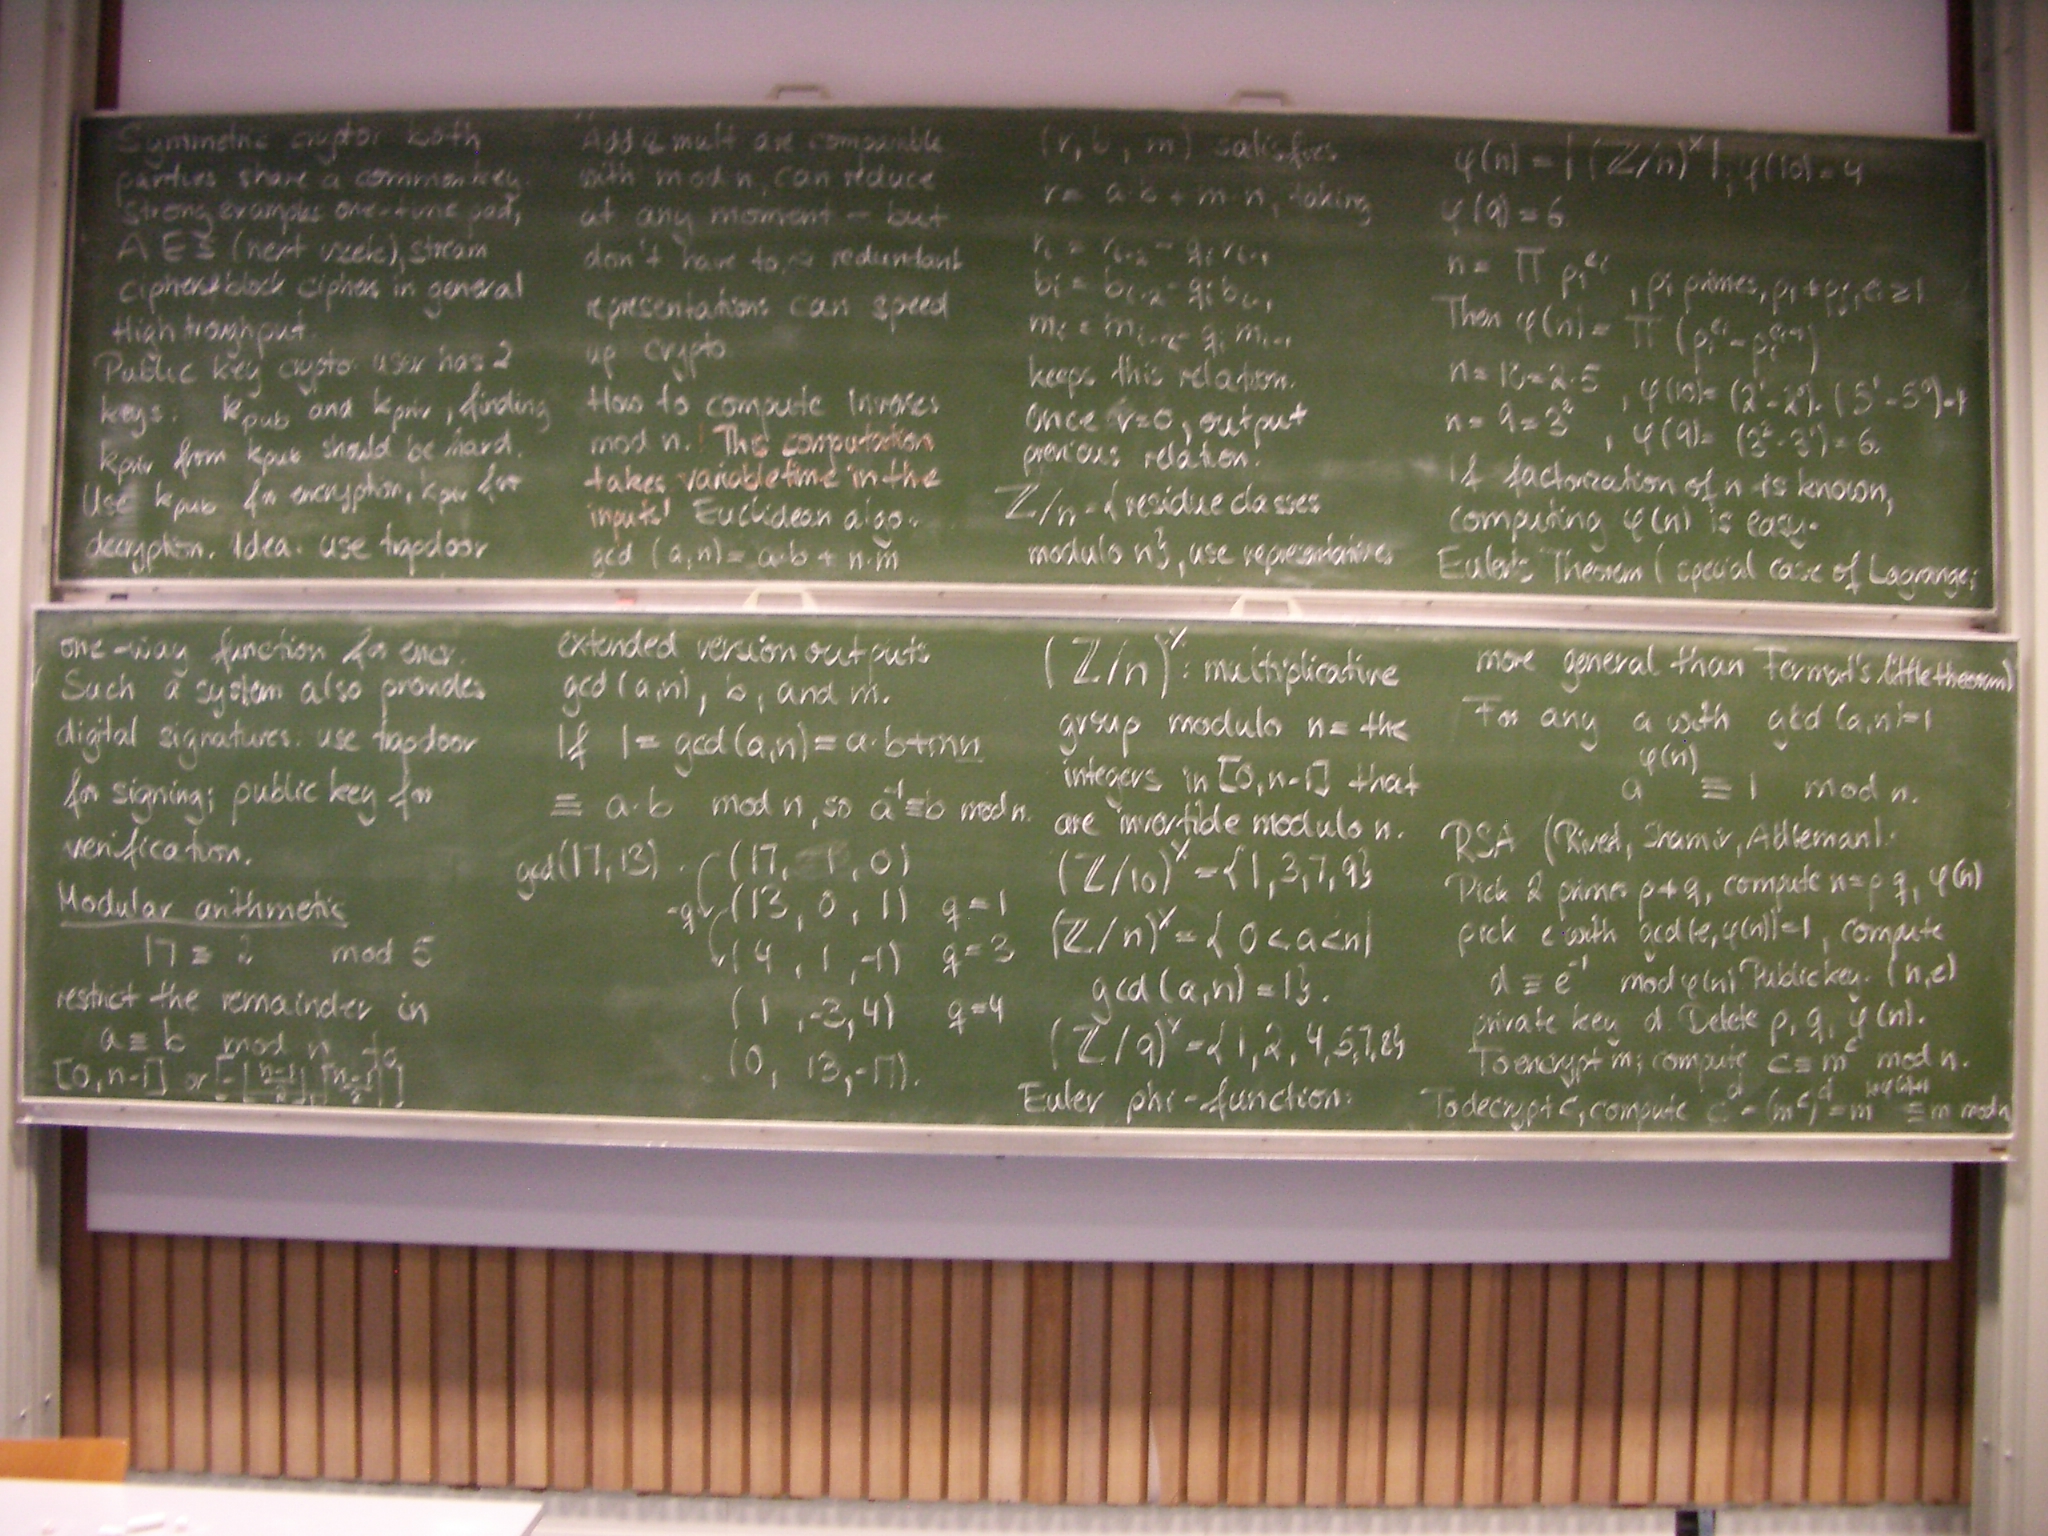 Symmetric crypto: both
parties share a common key.
Strong examples one-time pad,
AES (next week), stream
ciphers & block ciphers in general
High troughput.
Public key crypto: user has 2
keys: k_pub and k_priv, finding
k_priv from k_pub should be hard.
Use k_pub for encryption, k_priv for
decryption. Idea: use trapdoor
one-way function for encr.
Such a system also provides
digital signatures: use trapdoor
for signing; public key for
verification.
Modular arithmetic
17 ≡ 2 mod 5
restrict the remainder in
a ≡ b mod n to
[0, n-1] or
Add & mult are compatible
with mod n, can reduce
at any moment – but
don't have to, ~ redundant
representations can speed
up crypto.
How to compute inverses
mod n. ! This computation
takes variable time in the
inputs! Euclidean algo.
gcd (a,n) = a·b + n·m
extended version outputs
gcd(a,n), b, and m.
If 1 = gcd(a,n) = a·b+mn
≡ a·b mod n, so a^-1 ≡ b mod n.
gcd(17,13) (17, 1, 0)
-q (13, 0, 1) q = 1
(4, 1, -1) q = 3
(1, -3, 4) q = 4
(0, 13, -17).
(r, b, m) satisfies
r = a·b + m·n, taking
r_i = r_{i-2} - q_i r_{i-1}
b_i = b_{i-2} - q_i b_{i-1}
m_i = m_{i-2} - q_i m_{i-1}
keeps this relation.
Once r=0, output
previous relation.
ℤ/n = {residue classes
modulo n}, use representatives
(ℤ/n)^×: multiplicative
group modulo n = the
integers in [0, n-1] that
are invertible modulo n.
(ℤ/10)^× = {1, 3, 7, 9}
(ℤ/n)^× = { 0 < a < n |
gcd (a,n) = 1}.
(ℤ/9)^× = {1, 2, 4, 5, 7, 8}
Euler phi-function:
φ(n) = |(ℤ/n)^×|; φ(10) = 4
φ(9) = 6.
n = ∏ p_i^{e_i}, p_i primes, p_i ≠ p_j, e_i ≥ 1
Then φ(n) = ∏ (p_i^{e_i} - p_i^{e_i-1})
n = 10 = 2·5, φ(10) = (2^1-2^0)·(5^1-5^0) = 4
n = 9 = 3^2, φ(9) = (3^2-3^1) = 6.
If factorization of n is known,
computing φ(n) is easy.
Euler's Theorem (special case of Lagrange;
more general than Fermat's little theorem)
For any a with gcd (a,n)=1
a^φ(n) ≡ 1 mod n.
RSA (Rivest, Shamir, Adleman).
Pick 2 primes p ≠ q, compute n = p q, φ(n)
pick e with gcd(e, φ(n)) = 1, compute
d ≡ e^-1 mod φ(n) Public key: (n,e)
private key d. Delete p, q, φ(n).
To encrypt m; compute c ≡ m^e mod n.
To decrypt c, compute c^d = (m^e)^d = m ≡ m mod n